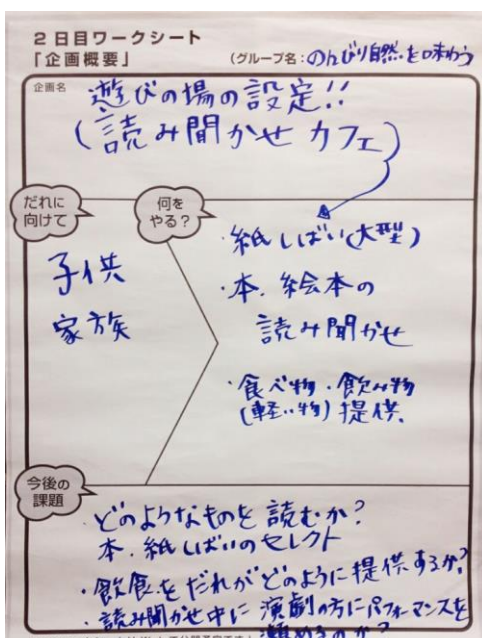 2日目ワークシート
「企画概要」
(グループ名:のんびり自然を味わう
企画名
遊びの場の設定!!
(読み聞かせカフェ)
だれに
向けて
子供
家族
何を
やる?
・紙しばい(大型)
・本、絵本の
読み聞かせ
・食べ物・飲み物
(軽い物)提供.
今後の
課題
・どのようなものを読むか?
本、紙しばいのセレクト
・飲食をだれがどのように提供するか?
・読み聞かせ中に演劇の方にパフォーマンスを